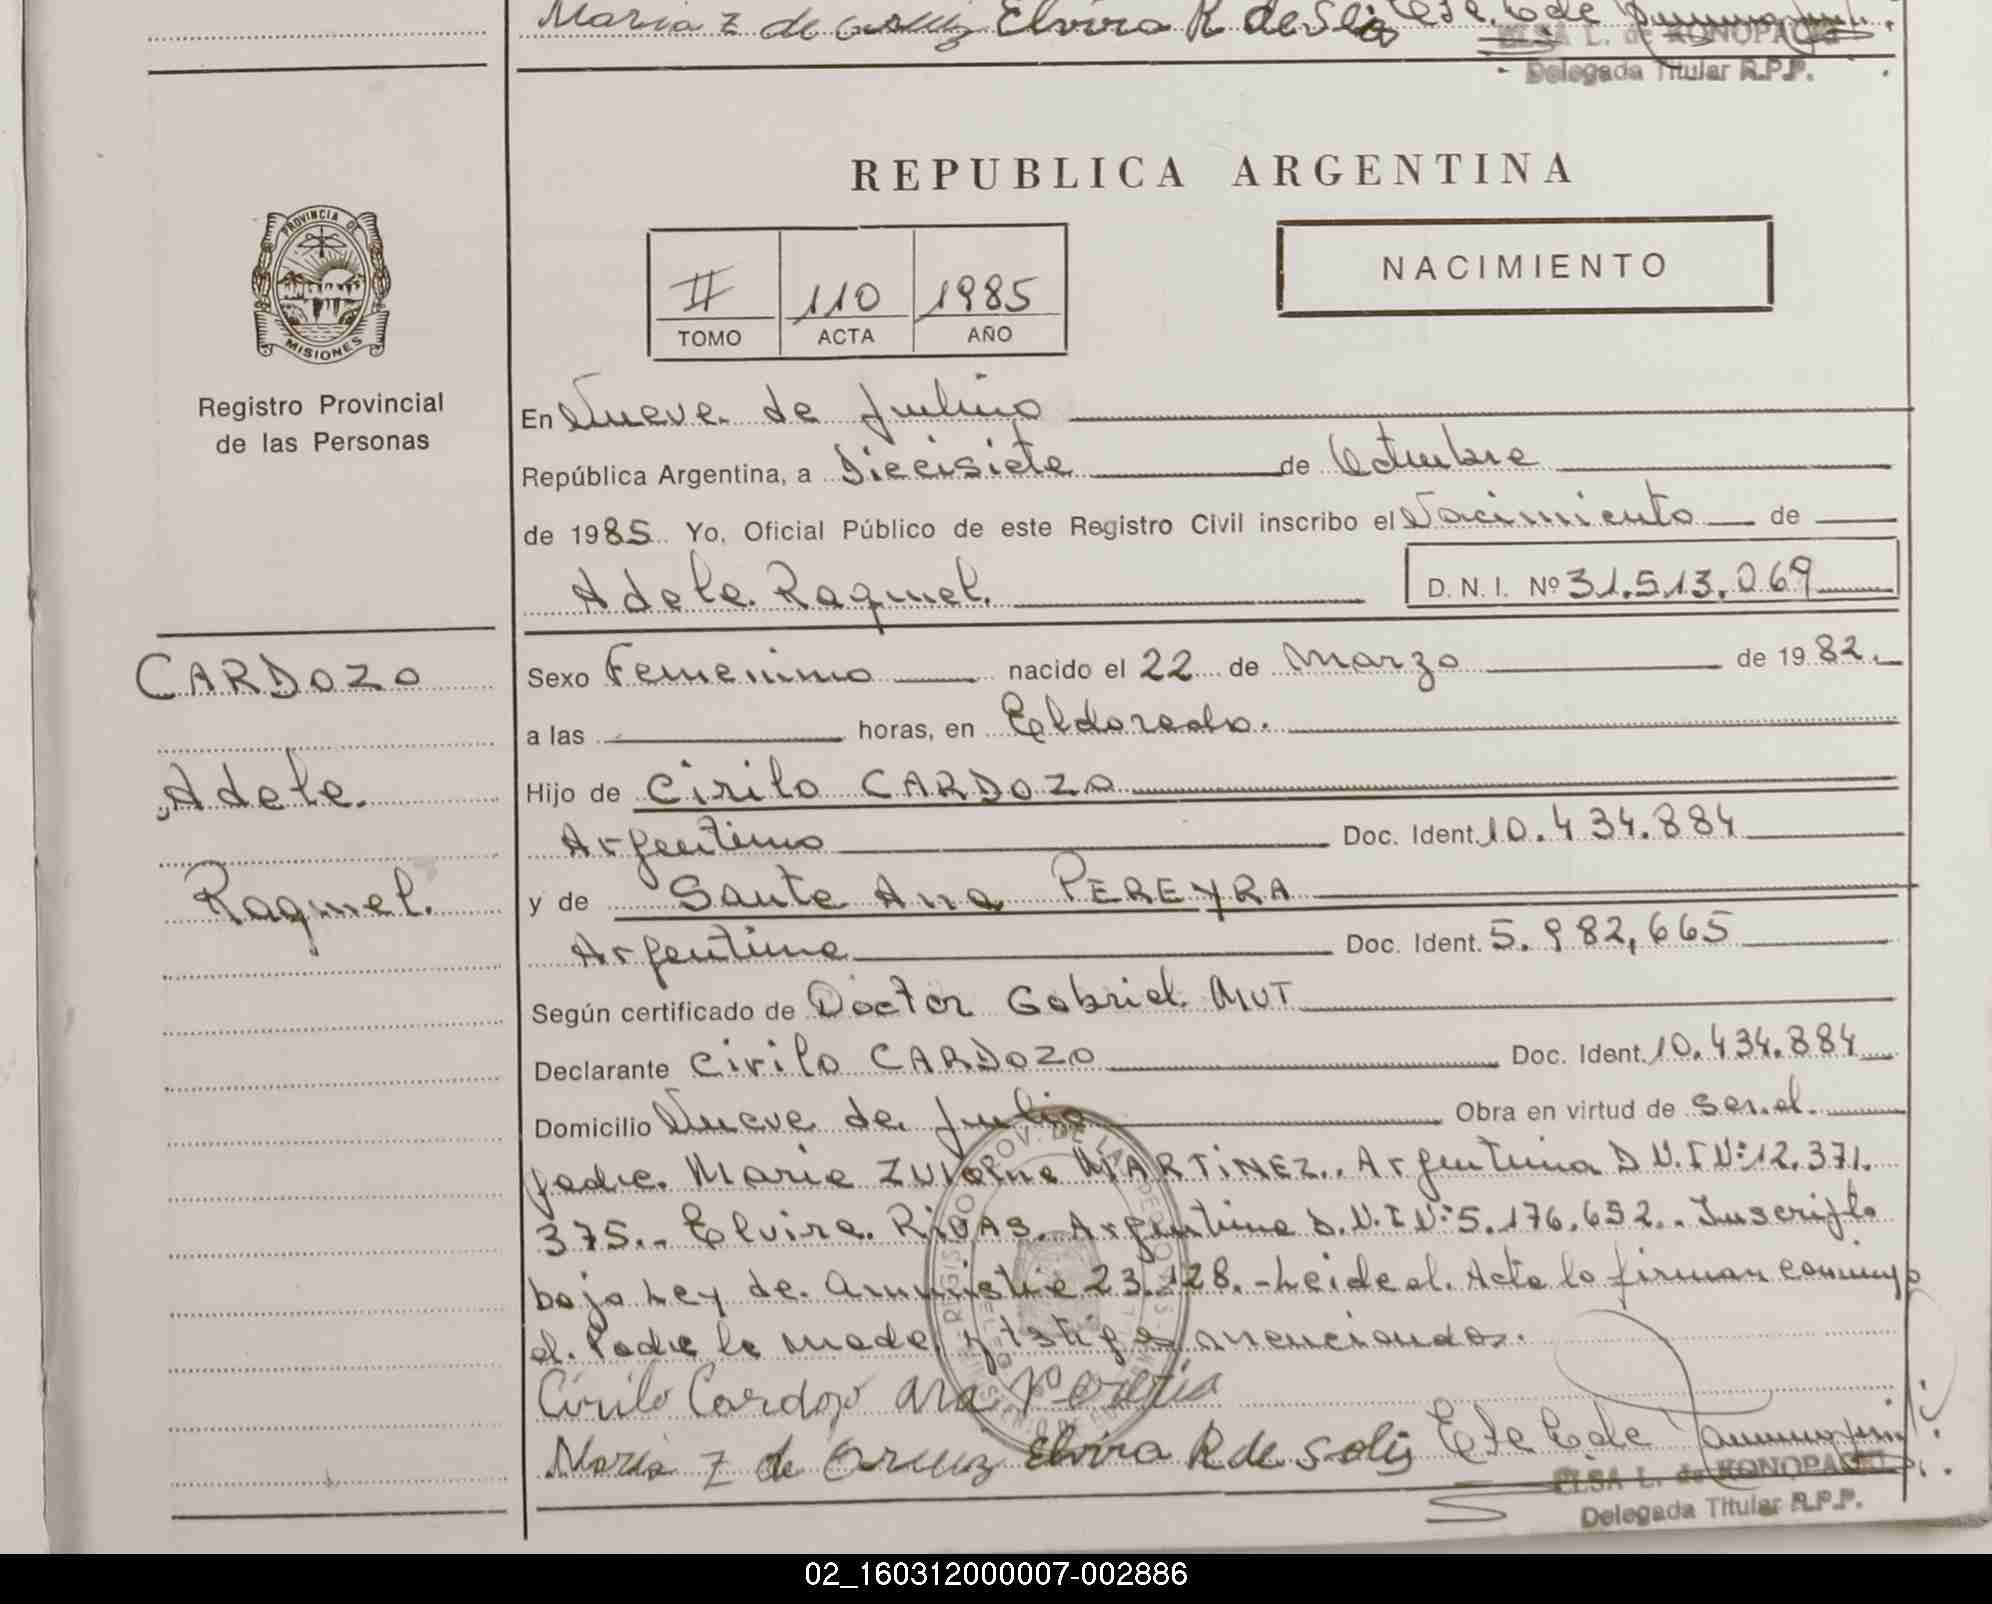 Maria Z de Elvira R de Solis
ELSA L. de KONOPACKI
Delegada Titular R.P.P.
REPUBLICA ARGENTINA
PROVINCIA DE
MISIONES
Registro Provincial
de las Personas
II 110 1985
TOMO ACTA AÑO
NACIMIENTO
En Nueve de Julio
República Argentina, a Diecisiete de Octubre
de 1985 Yo, Oficial Público de este Registro Civil inscribo el Nacimiento de
Adela Raquel. D. N. I. Nº 31.513.069
CARDOZO
Adela
Raquel.
Sexo Femenino nacido el 22 de Marzo de 1982.
a las horas, en Eldorado.
Hijo de Cirilo CARDOZO
Argentino Doc. Ident. 10.434.884
y de Santa Ana PEREYRA
Argentina Doc. Ident. 5.982,665
Según certificado de Doctor Gabriel MUT
Declarante Cirilo CARDOZO Doc. Ident. 10.434.884
Domicilio Nueve de Julio Obra en virtud de ser el
padre. Maria ZULMA MARTINEZ.. Argentina D.N.I Nº 12.371.
375.- Elvira RIVAS. Argentina D.N.I Nº 5.176.652.. Inscripto
bajo Ley de Amnistia 23.128.- Leida el Acta lo firman conmigo
el Padre la madre y testigos mencionados.
Cirilo Cardozo Ana Pereira
Maria Z de Elvira R de Solis
ELSA L. de KONOPACKI
Delegada Titular R.P.P.
02_160312000007-002886